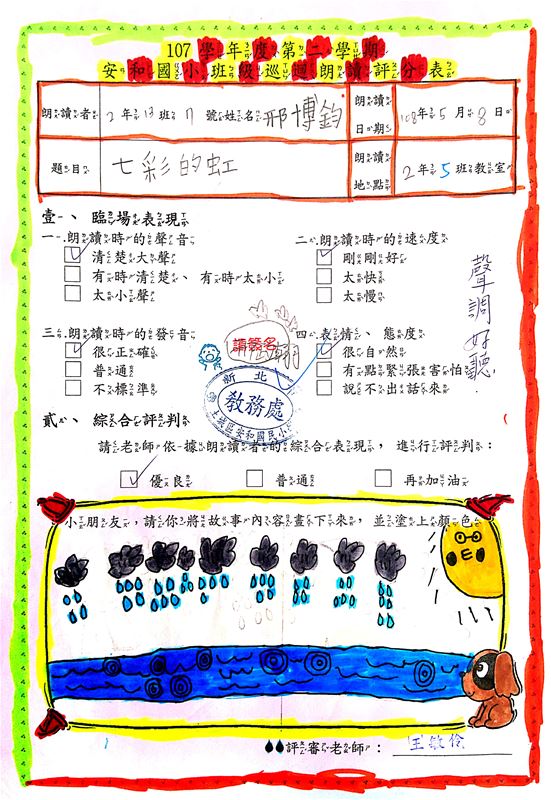 107學年度第二學期
安和國小班級巡迴朗讀評分表
朗讀者 2年13班17號姓名邢博鈞 朗讀日期 108年5月8日
題目 七彩的虹 朗讀地點 2年5班教室
壹、臨場表現
一.朗讀時的聲音 二.朗讀時的速度
清楚大聲 剛剛好
有時清楚、有時太小 太快
太小聲 太慢
聲調好聽
三.朗讀時的發音 四.表情、態度
很正確 很自然
普通 有點緊張害怕
不標準 說不出話來
請簽名
新北
教務處
土城區安和國民小
貳、綜合評判
請老師依據朗讀者的綜合表現,進行評判:
優良 普通 再加油
小朋友,請你將故事內容畫下來,並塗上顏色
評審老師: 王敏伶